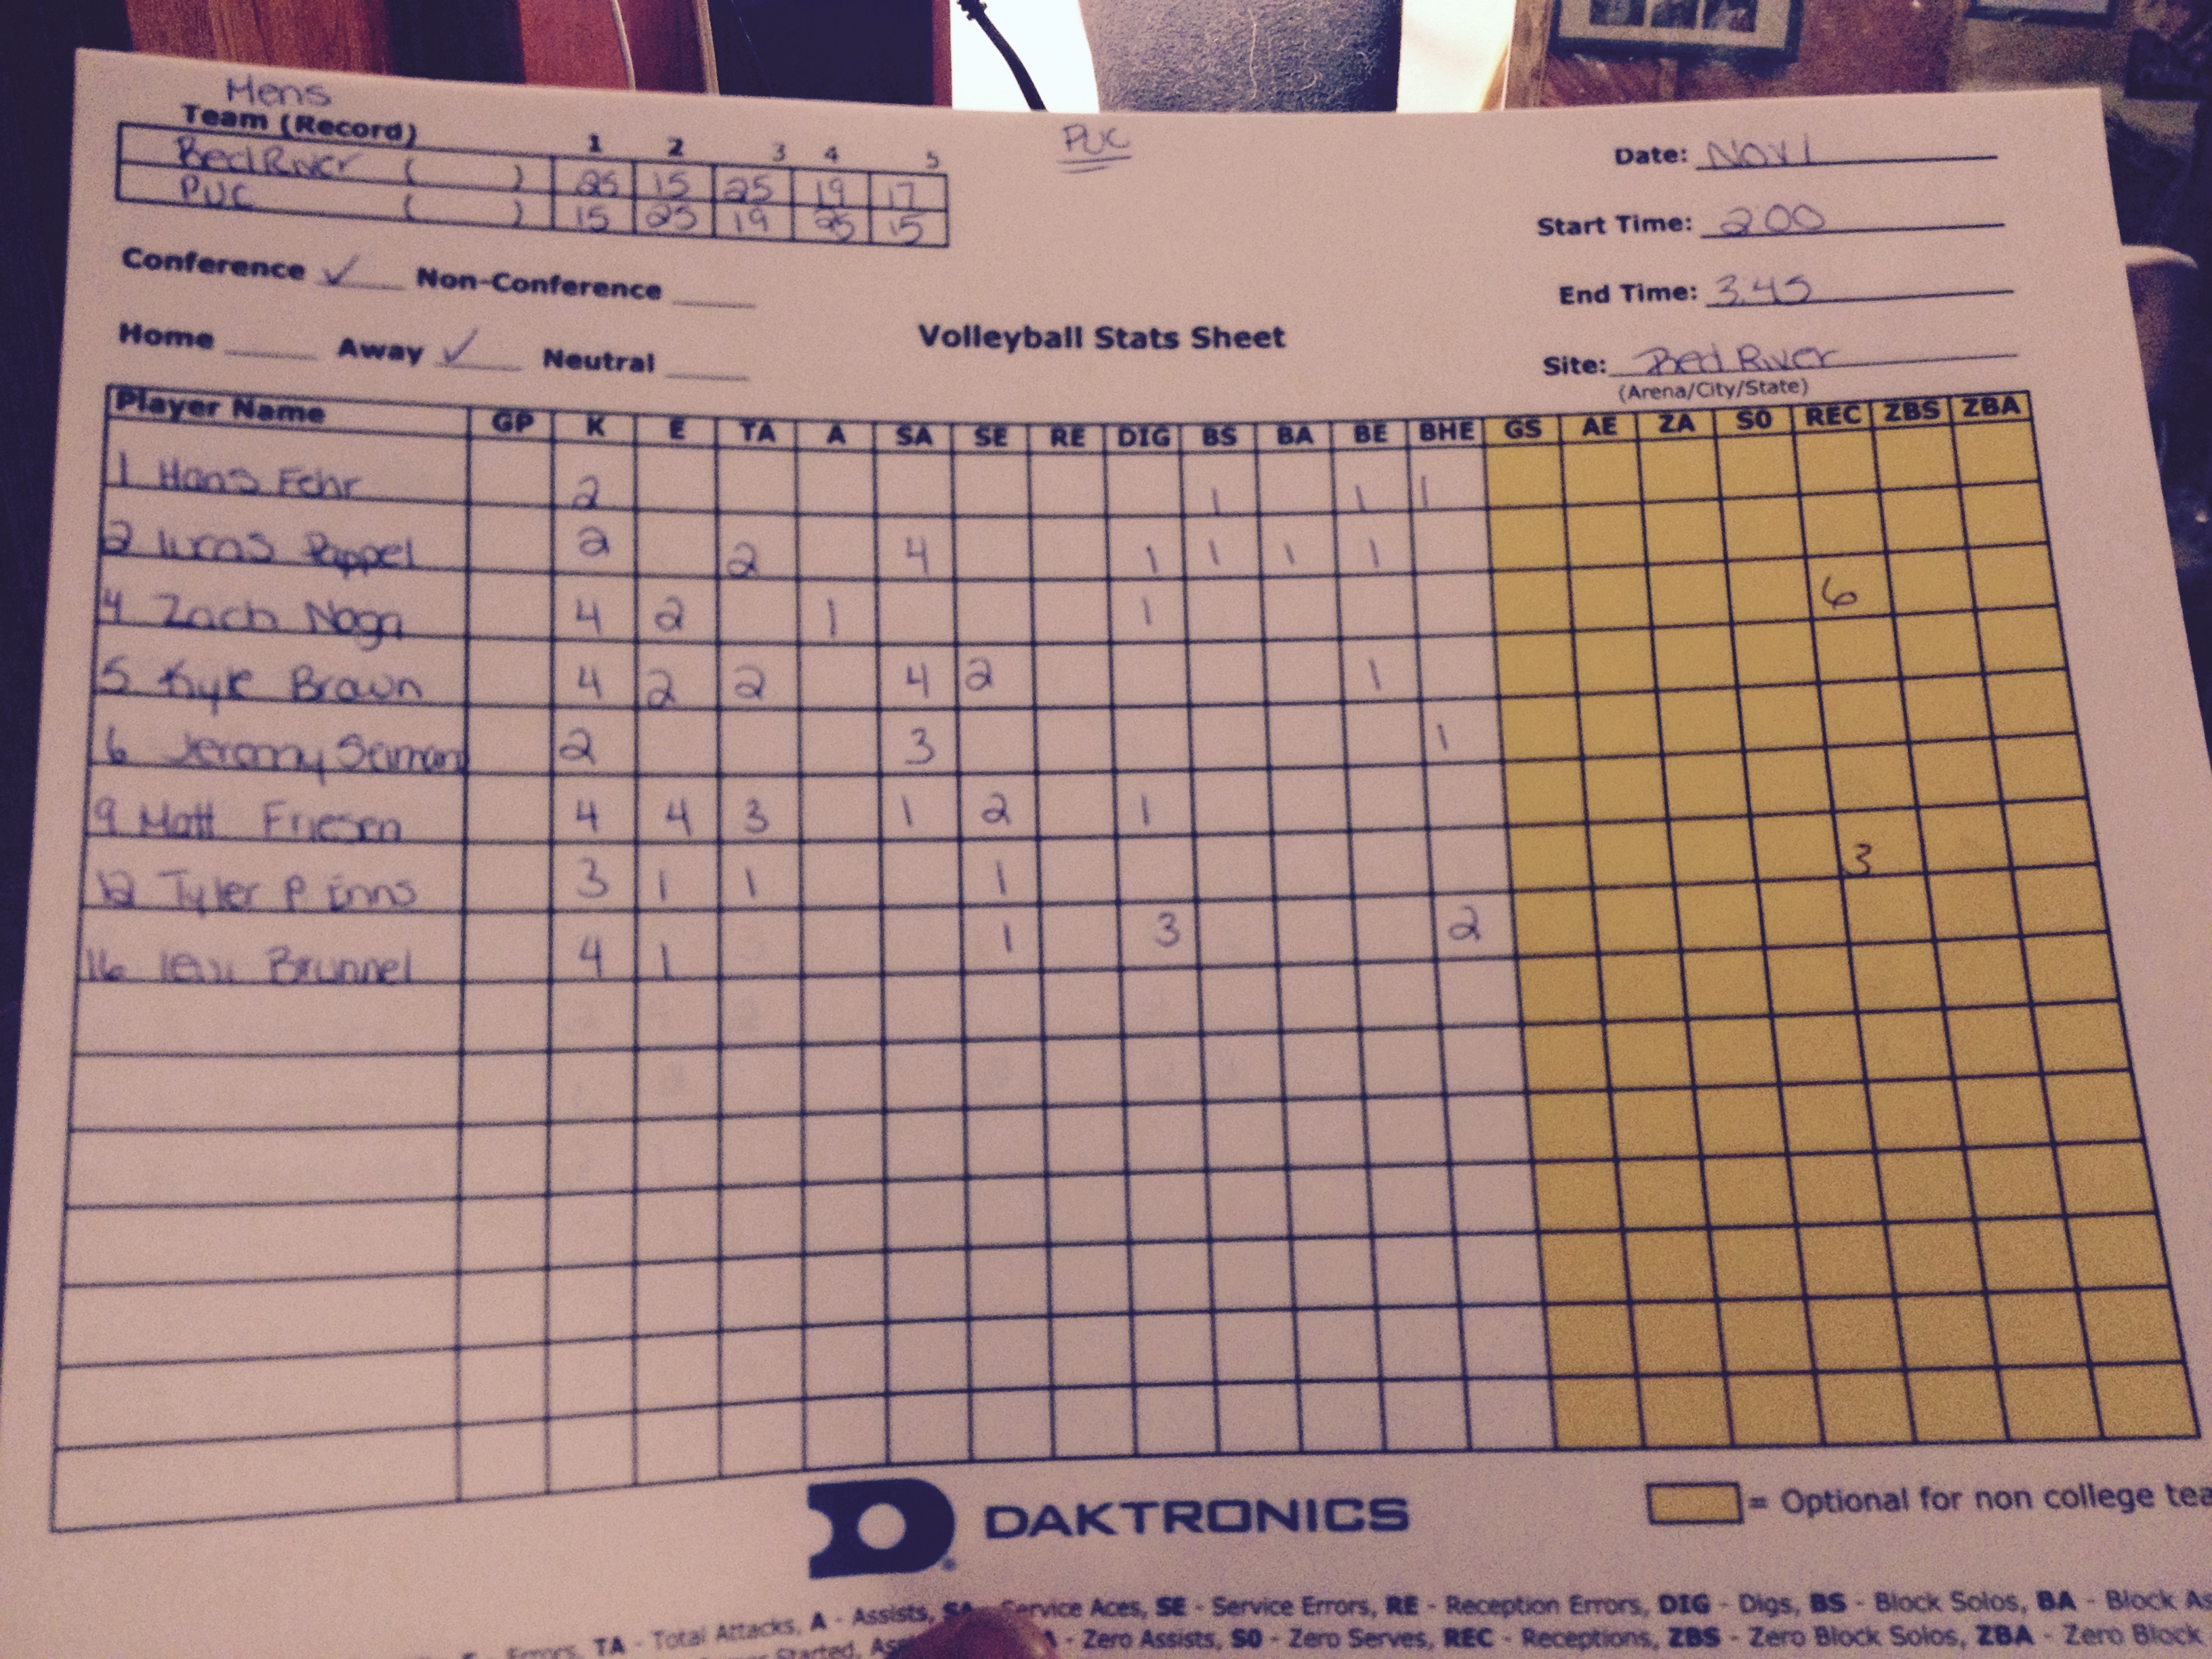 Mens
PUC
Team (Record) 1 2 3 4 5
Red River ( ) 25 15 25 19 17
PUC ( ) 15 25 19 25 15
Date: Nov 1
Start Time: 200
End Time: 3.45
Site: Red River
(Arena/City/State)
Conference ✓ Non-Conference
Home Away ✓ Neutral
Volleyball Stats Sheet
Player Name GP K E TA A SA SE RE DIG BS BA BE BHE GS AE ZA S0 REC ZBS ZBA
1 Hans Fehr 2 1 1 1
2 Lucas Pappel 2 2 4 1 1 1 1
4 Zach Noga 4 2 1 1 6
5 Kyle Brown 4 2 2 4 2 1
6 Jeremy 2 3 1
9 Matt Friesen 4 4 3 1 2 1
12 Tyler P Enns 3 1 1 1 3
16 Levi Brunnel 4 1 1 3 2
DAKTRONICS
= Optional for non college
Errors, TA - Total Attacks, A - Assists, Service Aces, SE - Service Errors, RE - Reception Errors, DIG - Digs, BS - Block Solos, BA - Block
Started, - Zero Assists, S0 - Zero Serves, REC - Receptions, ZBS - Zero Block Solos, ZBA - Zero Block